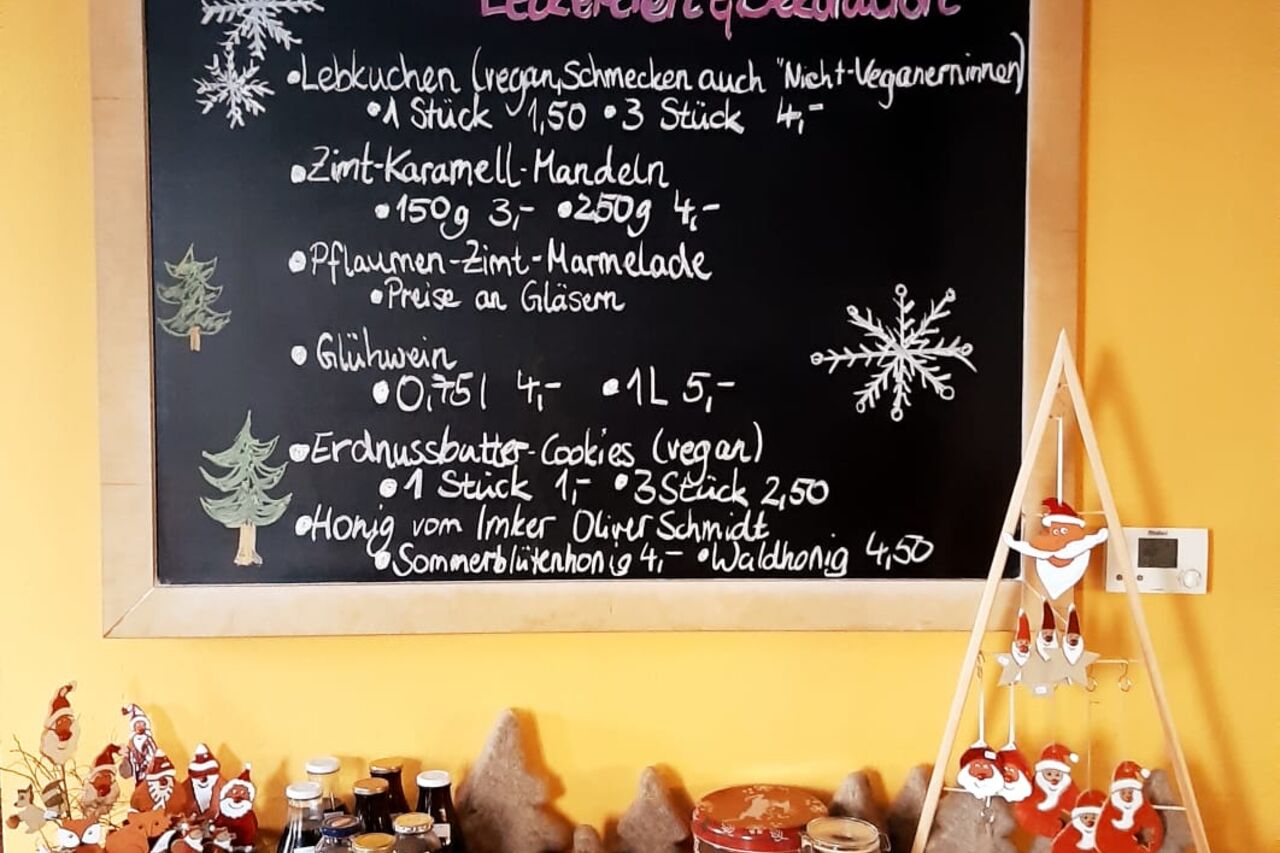 Leckereien & Dekoration
• Lebkuchen (vegan, Schmecken auch "Nicht-Veganerninnen)
• 1 Stück 1,50 • 3 Stück 4,-
• Zimt-Karamell-Mandeln
• 150g 3,- • 250g 4,-
• Pflaumen-Zimt-Marmelade
• Preise an Gläsern
• Glühwein
• 0,75l 4,- • 1L 5,-
• Erdnussbutter-Cookies (vegan)
• 1 Stück 1,- • 3 Stück 2,50
• Honig vom Imker Oliver Schmidt
• Sommerblütenhonig 4,- • Waldhonig 4,50